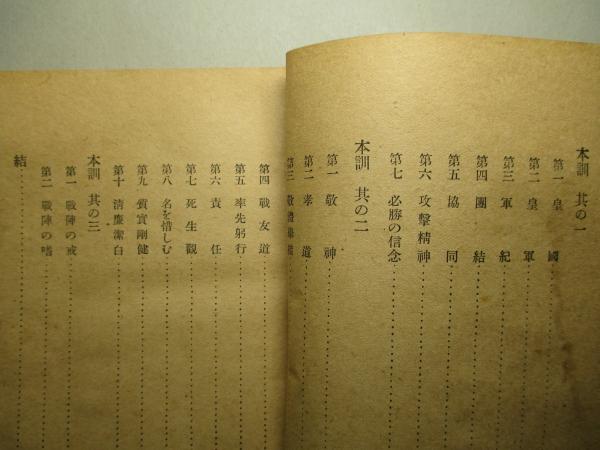 本訓 其の一
第一 皇國
第二 皇軍
第三 軍紀
第四 團結
第五 協同
第六 攻擊精神
第七 必勝の信念
本訓 其の二
第一 敬神
第二 孝道
第三 敬禮
第四 戰友道
第五 率先躬行
第六 責任
第七 死生觀
第八 名を惜しむ
第九 質實剛健
第十 淸廉潔白
本訓 其の三
第一 戰陣の戒
第二 戰陣の嗜
結